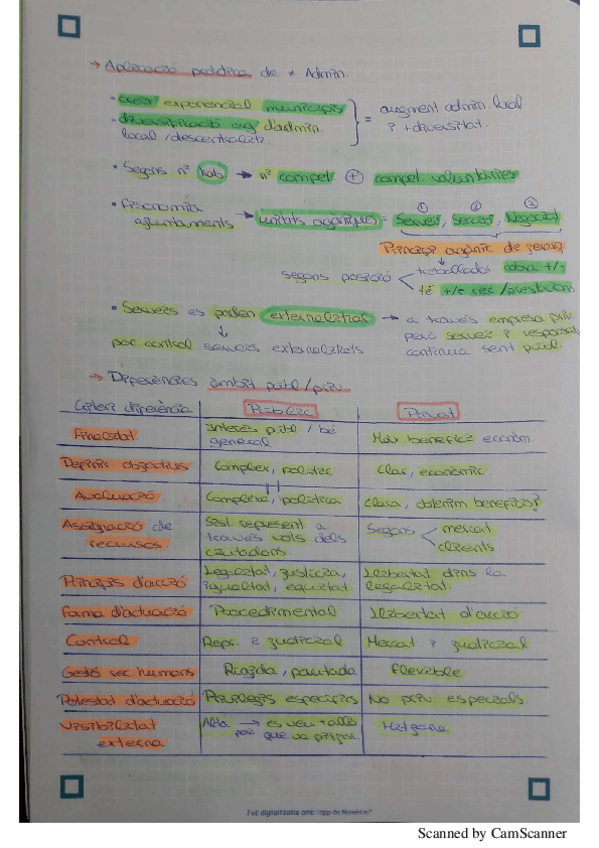 → Aplicació pràctica de ≠ Admin.
• creix exponencial municipis
• diversificació org d'admin.
local/descentralitz
= augment admin. local
i +diversitat.
• Segons nº hab → nº compet + compet voluntàries
• fisonomia
ajuntaments → unitats orgàniques = Servei, Secció, Negociat
① ② ③
Principi orgànic de jerarq.
segons posició < treballador cobra +/-
té +/- rec /prestacions
• Serveis es poden externalitzar → a través empresa priv.
però servei i responsab
continua sent públ
↓
poc control serveis externalitzats
→ Diferències àmbit públ/priv.
Criteri diferència Públic Privat
Finalitat Interès públ / bé
general Màx. benefici econòm.
Definir objectius Complex, polític Clar, econòmic
Avaluació Complexa, política Clara, obtenim benefici?
Assignació de
recursos Sist. represent a
través vots dels
ciutadans Segons < mercat
clients
Principis d'acció Legalitat, justícia,
igualtat, equitat Llibertat dins la
legalitat.
Forma d'actuació Procedimental Llibertat d'acció
Control Repr. i judicial Mercat i judicial
Gestió rec humans Rígida, pautada flexible
Potestat d'actuació Privilegis específics No priv. especials.
Visibilitat
externa Alta → es veu + allò
que va pitjor. Mitjana
Full digitalitzable amb l'app de Nuwblac®
Scanned by CamScanner